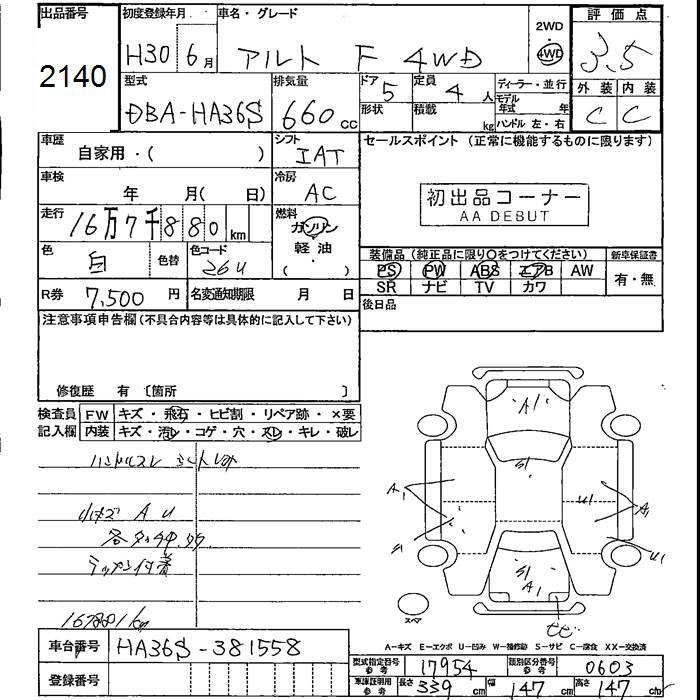 出品番号 初度登録年月 車名・グレード 評価点
2140 H30 6月 アルト F 4WD 2WD 4WD 3.5
型式 排気量 ドア 定員 ディーラー・並行 外装 内装
DBA-HA36S 660cc 5 4人 モデル年式 年 C C
形状 積載 kg ハンドル 左・右
車歴 自家用・( ) シフト IAT セールスポイント (正常に機能するものに限ります)
車検 年 月( 日) 冷房 AC
初出品コーナー
AA DEBUT
走行 16万7千880km 燃料 ガソリン 軽油 ( )
色 白 色替 色コード 26U
装備品(純正品に限り○をつけてください) 新車保証書
PS PW ABS エアB AW 有・無
SR ナビ TV カワ
R券 7,500円 名変通知期限 月 日 後日品
注意事項申告欄(不具合内容等は具体的に記入して下さい)
修復歴 有 〔箇所 〕
検査員 FW キズ・飛石・ヒビ割・リペア跡・×要
記入欄 内装 キズ・汚レ・コゲ・穴・スレ・キレ・破レ
ハンドルスレ
小キズ A U
付着
A1
S1
A1
S1
U1
A1
U1
S1
A1
スペア
A-キズ E-エクボ U-凹み W-補修跡 S-サビ C-腐食 XX-交換済
車台番号 HA36S-381558
登録番号
型式指定番号 参考 17954 類別区分番号 参考 0603
車庫証明用 参考 長さ 339cm 幅 147cm 高さ 147cm